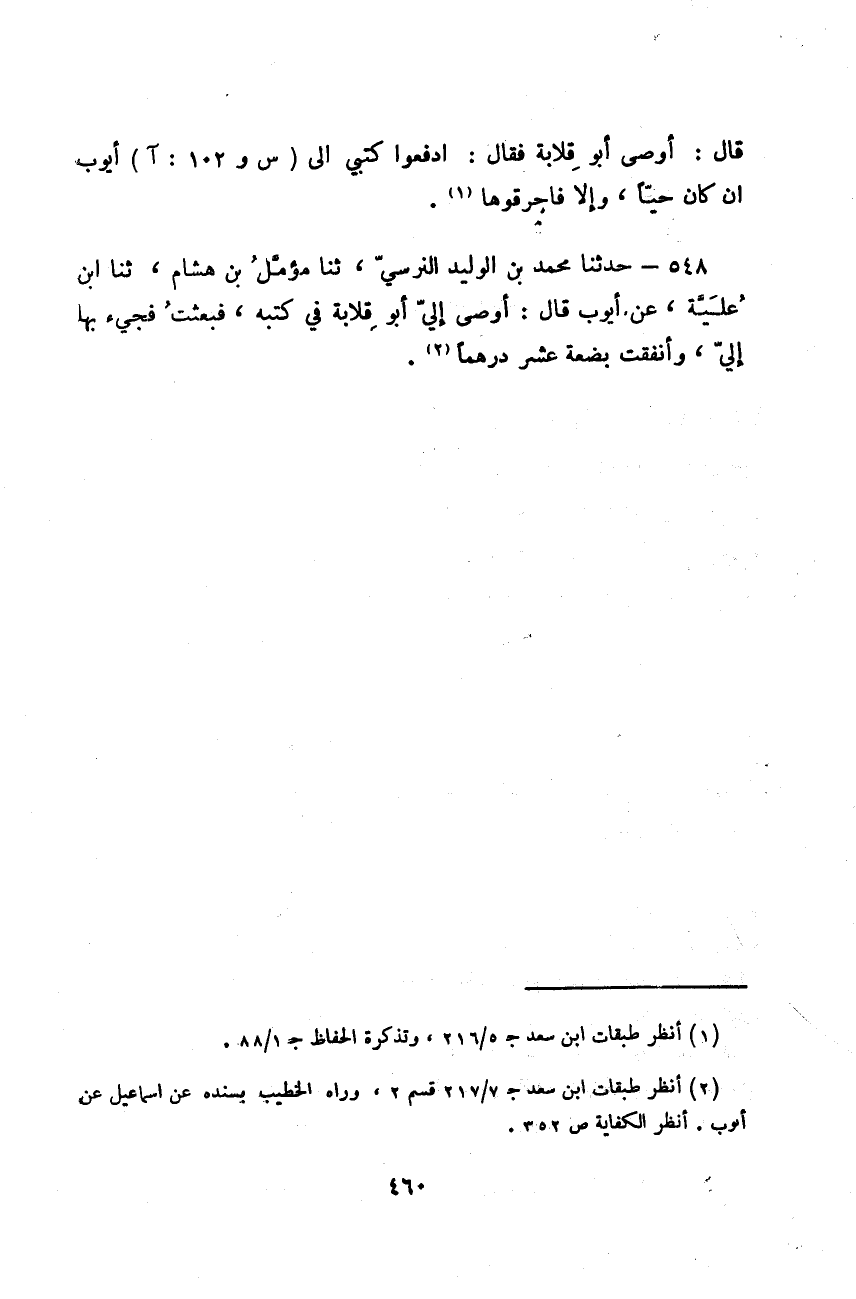 قال : أوصى أبو قِلابة فقال : ادفعوا كتبي الى ( س و ١٠٢ : آ ) أيوب
ان كان حيـّاً ، وإلا فاحرقوها (١) .
٥٤٨ – حدثنا محمد بن الوليد النرسيّ ، ثنا مؤمَّلُ بن هشام ، ثنا ابن
عُلَيَّة ، عن أيوب قال : أوصى إليّ أبو قِلابة في كتبه ، فبعثتُ فجيء بها
إليّ ، وأنفقت بضعة عشر درهماً (٢) .
(١) أنظر طبقات ابن سعد جـ ٢١٦/٥ ، وتذكرة الحفاظ جـ ٨٨/١ .
(٢) أنظر طبقات ابن سعد جـ ٢١٧/٧ قسم ٢ ، وراه الخطيب بسنده عن اسماعيل عن
أيوب . أنظر الكفاية ص ٣٥٢ .
٤٦٠